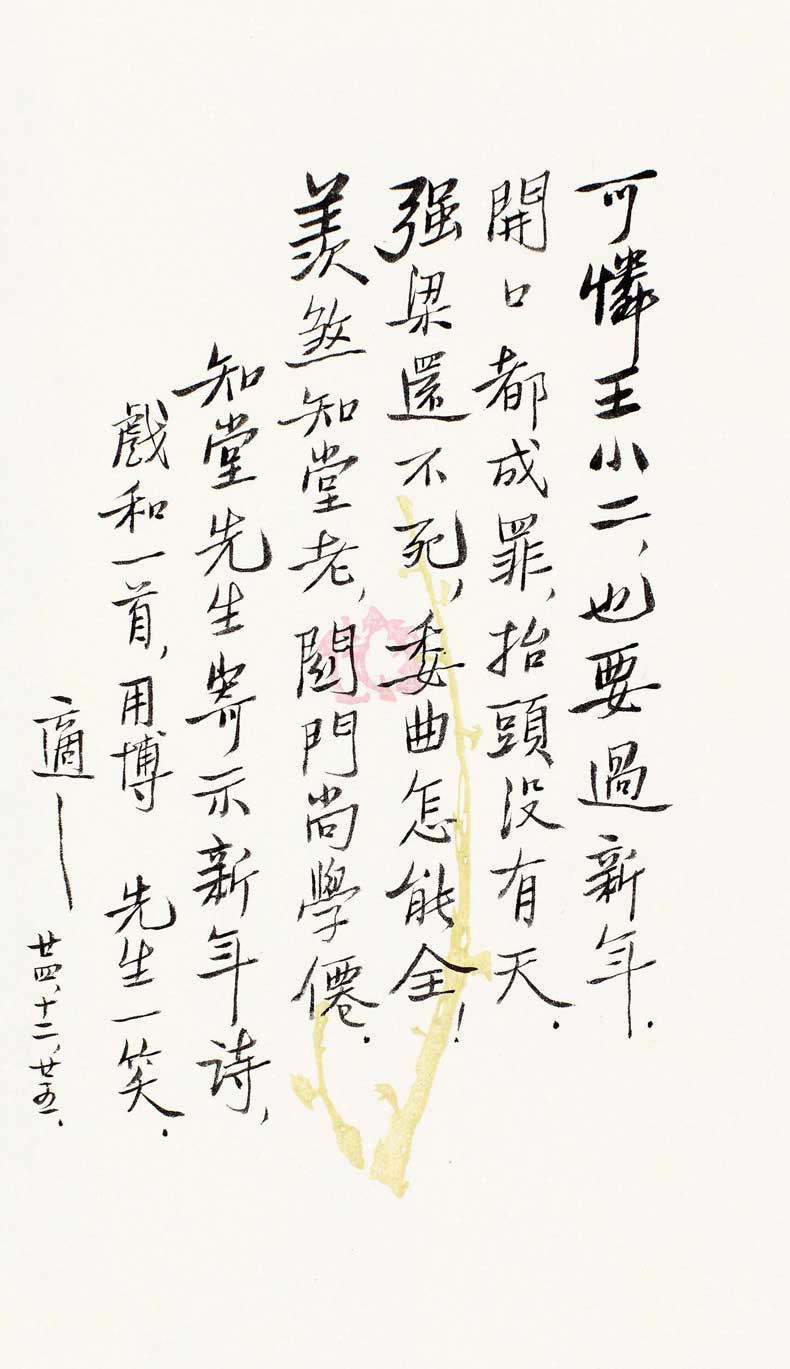 可憐王小二,也要過新年.
開口都成罪,抬頭没有天.
强梁還不死,委曲怎能全!
羨煞知堂老,關門尚學僊.
知堂先生寄示新年诗,
戲和一首,用博 先生一笑.
適
廿四、十二、廿五.